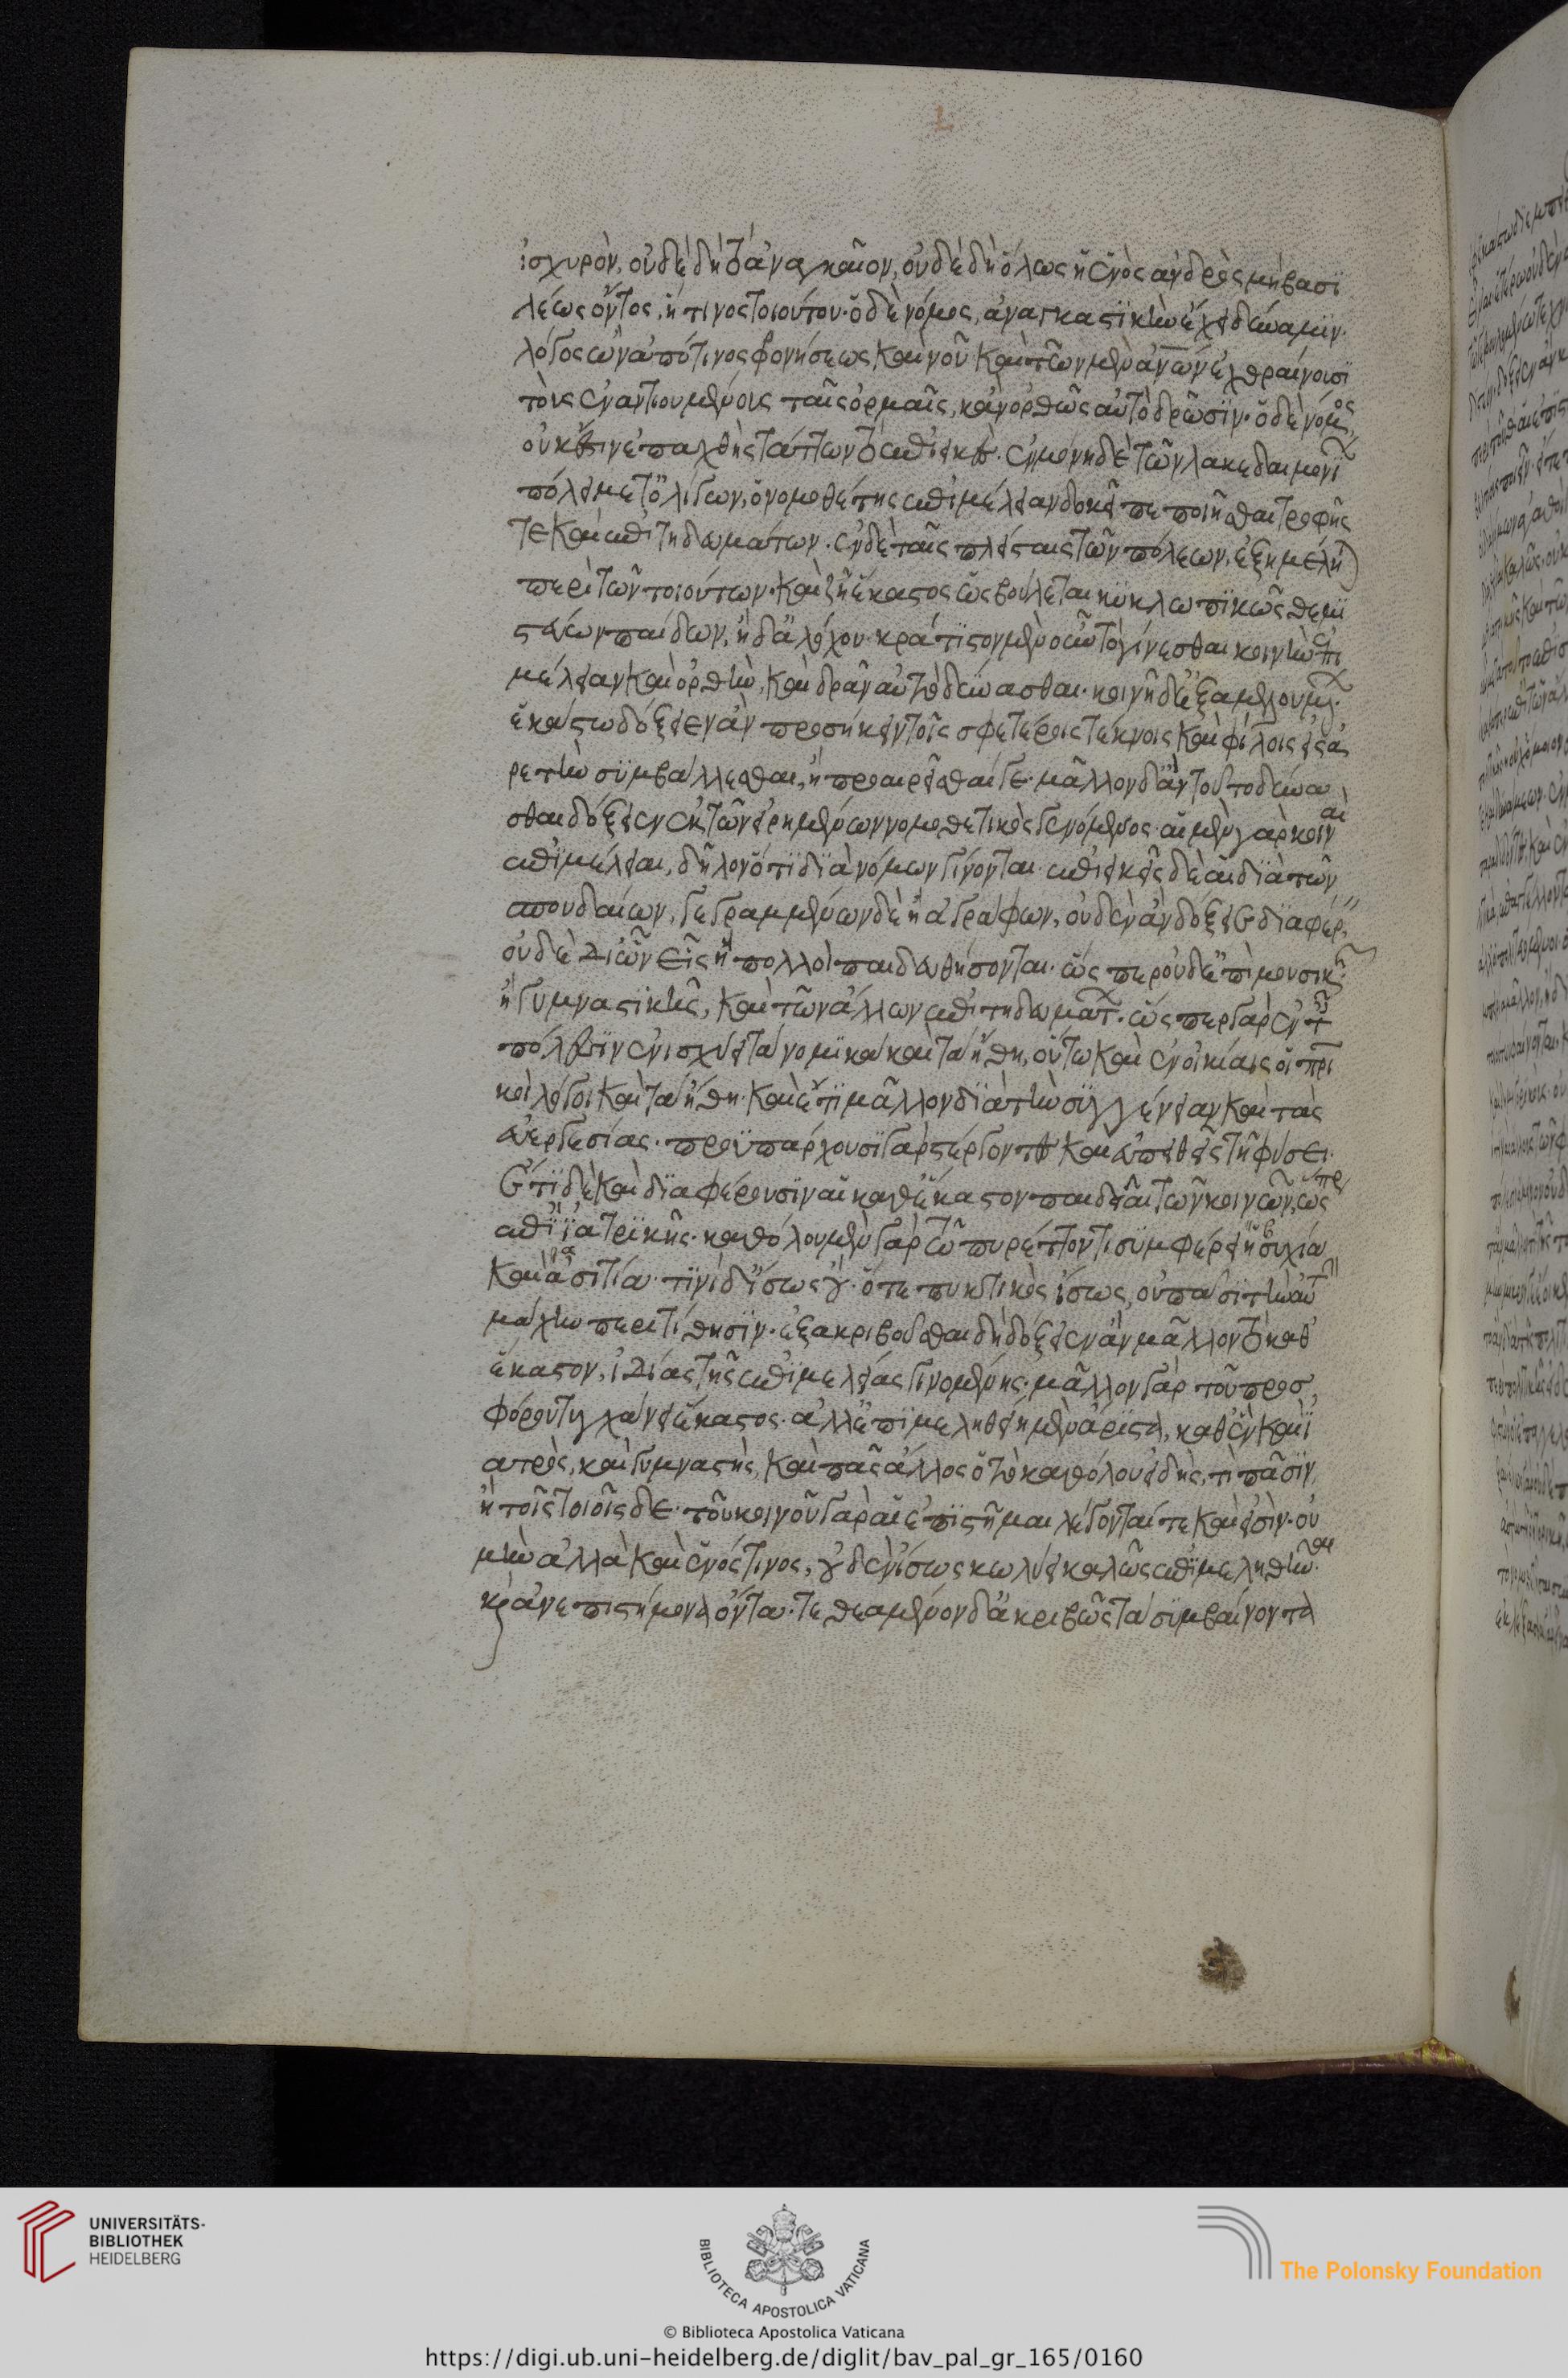 ἰσχυρὸν, οὐδὲ δὴ τὸ ἀναγκαῖον, οὐδὲ δὴ ὅλως ἡ ἑνὸς ἀνδρὸς μὴ βασι
λέως ὄντος, ἤ τινος τοιούτου· ὁ δὲ νόμος, ἀναγκαστικὴν ἔχει δύναμιν·
λόγος ὢν ἀπό τινος φρονήσεως καὶ νοῦ· καὶ τῶν μὲν ἀνων ἐχθραίνουσι
τοῖς ἐναντιουμένοις ταῖς ὁρμαῖς, κἂν ὀρθῶς αὐτὸ δρῶσιν· ὁ δὲ νόμος,
οὐκ ἔστιν ἐπαχθὴς τάττων τὸ ἐπιεικές· ἐν μόνῃ δὲ τῶν λακεδαιμονί
πόλει μετ' ὀλίγων, ὁ νομοθέτης ἐπιμέλειαν δοκεῖ πεποιῆσθαι τροφῆς
τε καὶ ἐπιτηδευμάτων· ἐν δὲ ταῖς πλείσταις τῶν πόλεων, ἐξημέλη)
περὶ τῶν τοιούτων· καὶ ζῇ ἕκαστος ὡς βούλεται κυκλωπικῶς θεμι
στεύων παίδων, ἠδ' ἀλόχου· κράτιστον μὲν οὖν τὸ γίνεσθαι κοινὴν ἐπι
μέλειαν καὶ ὀρθὴν, καὶ δρᾶν αὐτὸ δύνασθαι· κοινῇ δ' ἐξαμελουμέ
ἑκάστω δόξειεν ἂν προσήκειν τοῖς σφετέροις τέκνοις καὶ φίλοις εἰς ἀ
ρετὴν συμβάλλεσθαι, ἢ προαιρεῖσθαί γε· μᾶλλον δ' ἂν τοῦτο δύνα
σθαι δόξειεν ἐκ τῶν εἰρημένων νομοθετικὸς γενόμενος· αἱ μὲν γὰρ κοιναὶ
ἐπιμέλειαι, δῆλον ὅτι διὰ νόμων γίνονται· ἐπιεικεῖς δὲ αἱ διὰ τῶν
σπουδαίων, γεγραμμένων δὲ ἢ ἀγράφων, οὐδὲν ἂν δόξειε διαφέρ
οὐδὲ δι' ὧν εἷς ἢ πολλοὶ παιδευθήσονται· ὥς περ οὐδ' ἐπὶ μουσικ
ἢ γυμναστικῆς, καὶ τῶν ἄλλων ἐπιτηδευμάτ· ὥς περ γὰρ ἐν τ
πόλεσιν ἐνισχύει τὰ νομικὰ καὶ τὰ ἤθη, οὕτω καὶ ἐν οἰκίαις οἱ πρι
κοὶ λόγοι καὶ τὰ ἤθη· καὶ ἔτι μᾶλλον διὰ τὴν συγγένειαν καὶ τὰς
εὐεργεσίας· προϋπάρχουσι γὰρ στέργοντες καὶ εὐπειθεῖς τῇ φύσει·
ἔτι δὲ καὶ διαφέρουσιν αἱ καθέκαστον παιδεῖαι τῶν κοινῶν, ὥς περ
ἐπὶ ἰατρικῆς· καθόλου μὲν γὰρ τῶ πυρέττοντι συμφέρει ἡσυχία
καὶ ἀσιτία· τινὶ δ' ἴσως οὐ· ὅ τε πυκτικὸς ἴσως, οὐ πᾶσι τὴν αὐτ
μάχην περιτίθησιν· ἐξακριβοῦσθαι δὴ δόξειεν ἂν μᾶλλον τὸ καθ'
ἕκαστον, ἰδίας τῆς ἐπιμελείας γινομένης· μᾶλλον γὰρ τοῦ προσ
φόρου τυγχάνει ἕκαστος· ἀλλ' ἐπιμεληθείη μὲν ἄριστα, καθ' ἓν καὶ ἰ
ατρὸς, καὶ γυμναστὴς, καὶ πᾶς ἄλλος ὁ τὸ καθόλου εἰδὼς, τί πᾶσιν,
ἢ τοῖς τοιοῖς δε· τοῦ κοινοῦ γὰρ αἱ ἐπιστῆμαι λέγονταί τε καὶ εἰσὶν· οὐ
μὴν ἀλλὰ καὶ ἑνός τινος, οὐδὲν ἴσως κωλύει καλῶς ἐπιμεληθῆναι
κἂν ἀνεπιστήμονα ὄντα· τεθεαμένον δ' ἀκριβῶς τὰ συμβαίνοντα
UNIVERSITÄTS-
BIBLIOTHEK
HEIDELBERG
BIBLIOTECA APOSTOLICA VATICANA
The Polonsky Foundation
© Biblioteca Apostolica Vaticana
https://digi.ub.uni-heidelberg.de/diglit/bav_pal_gr_165/0160